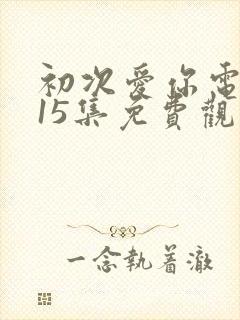 初次愛你電
15集免費觀
一念執着澈